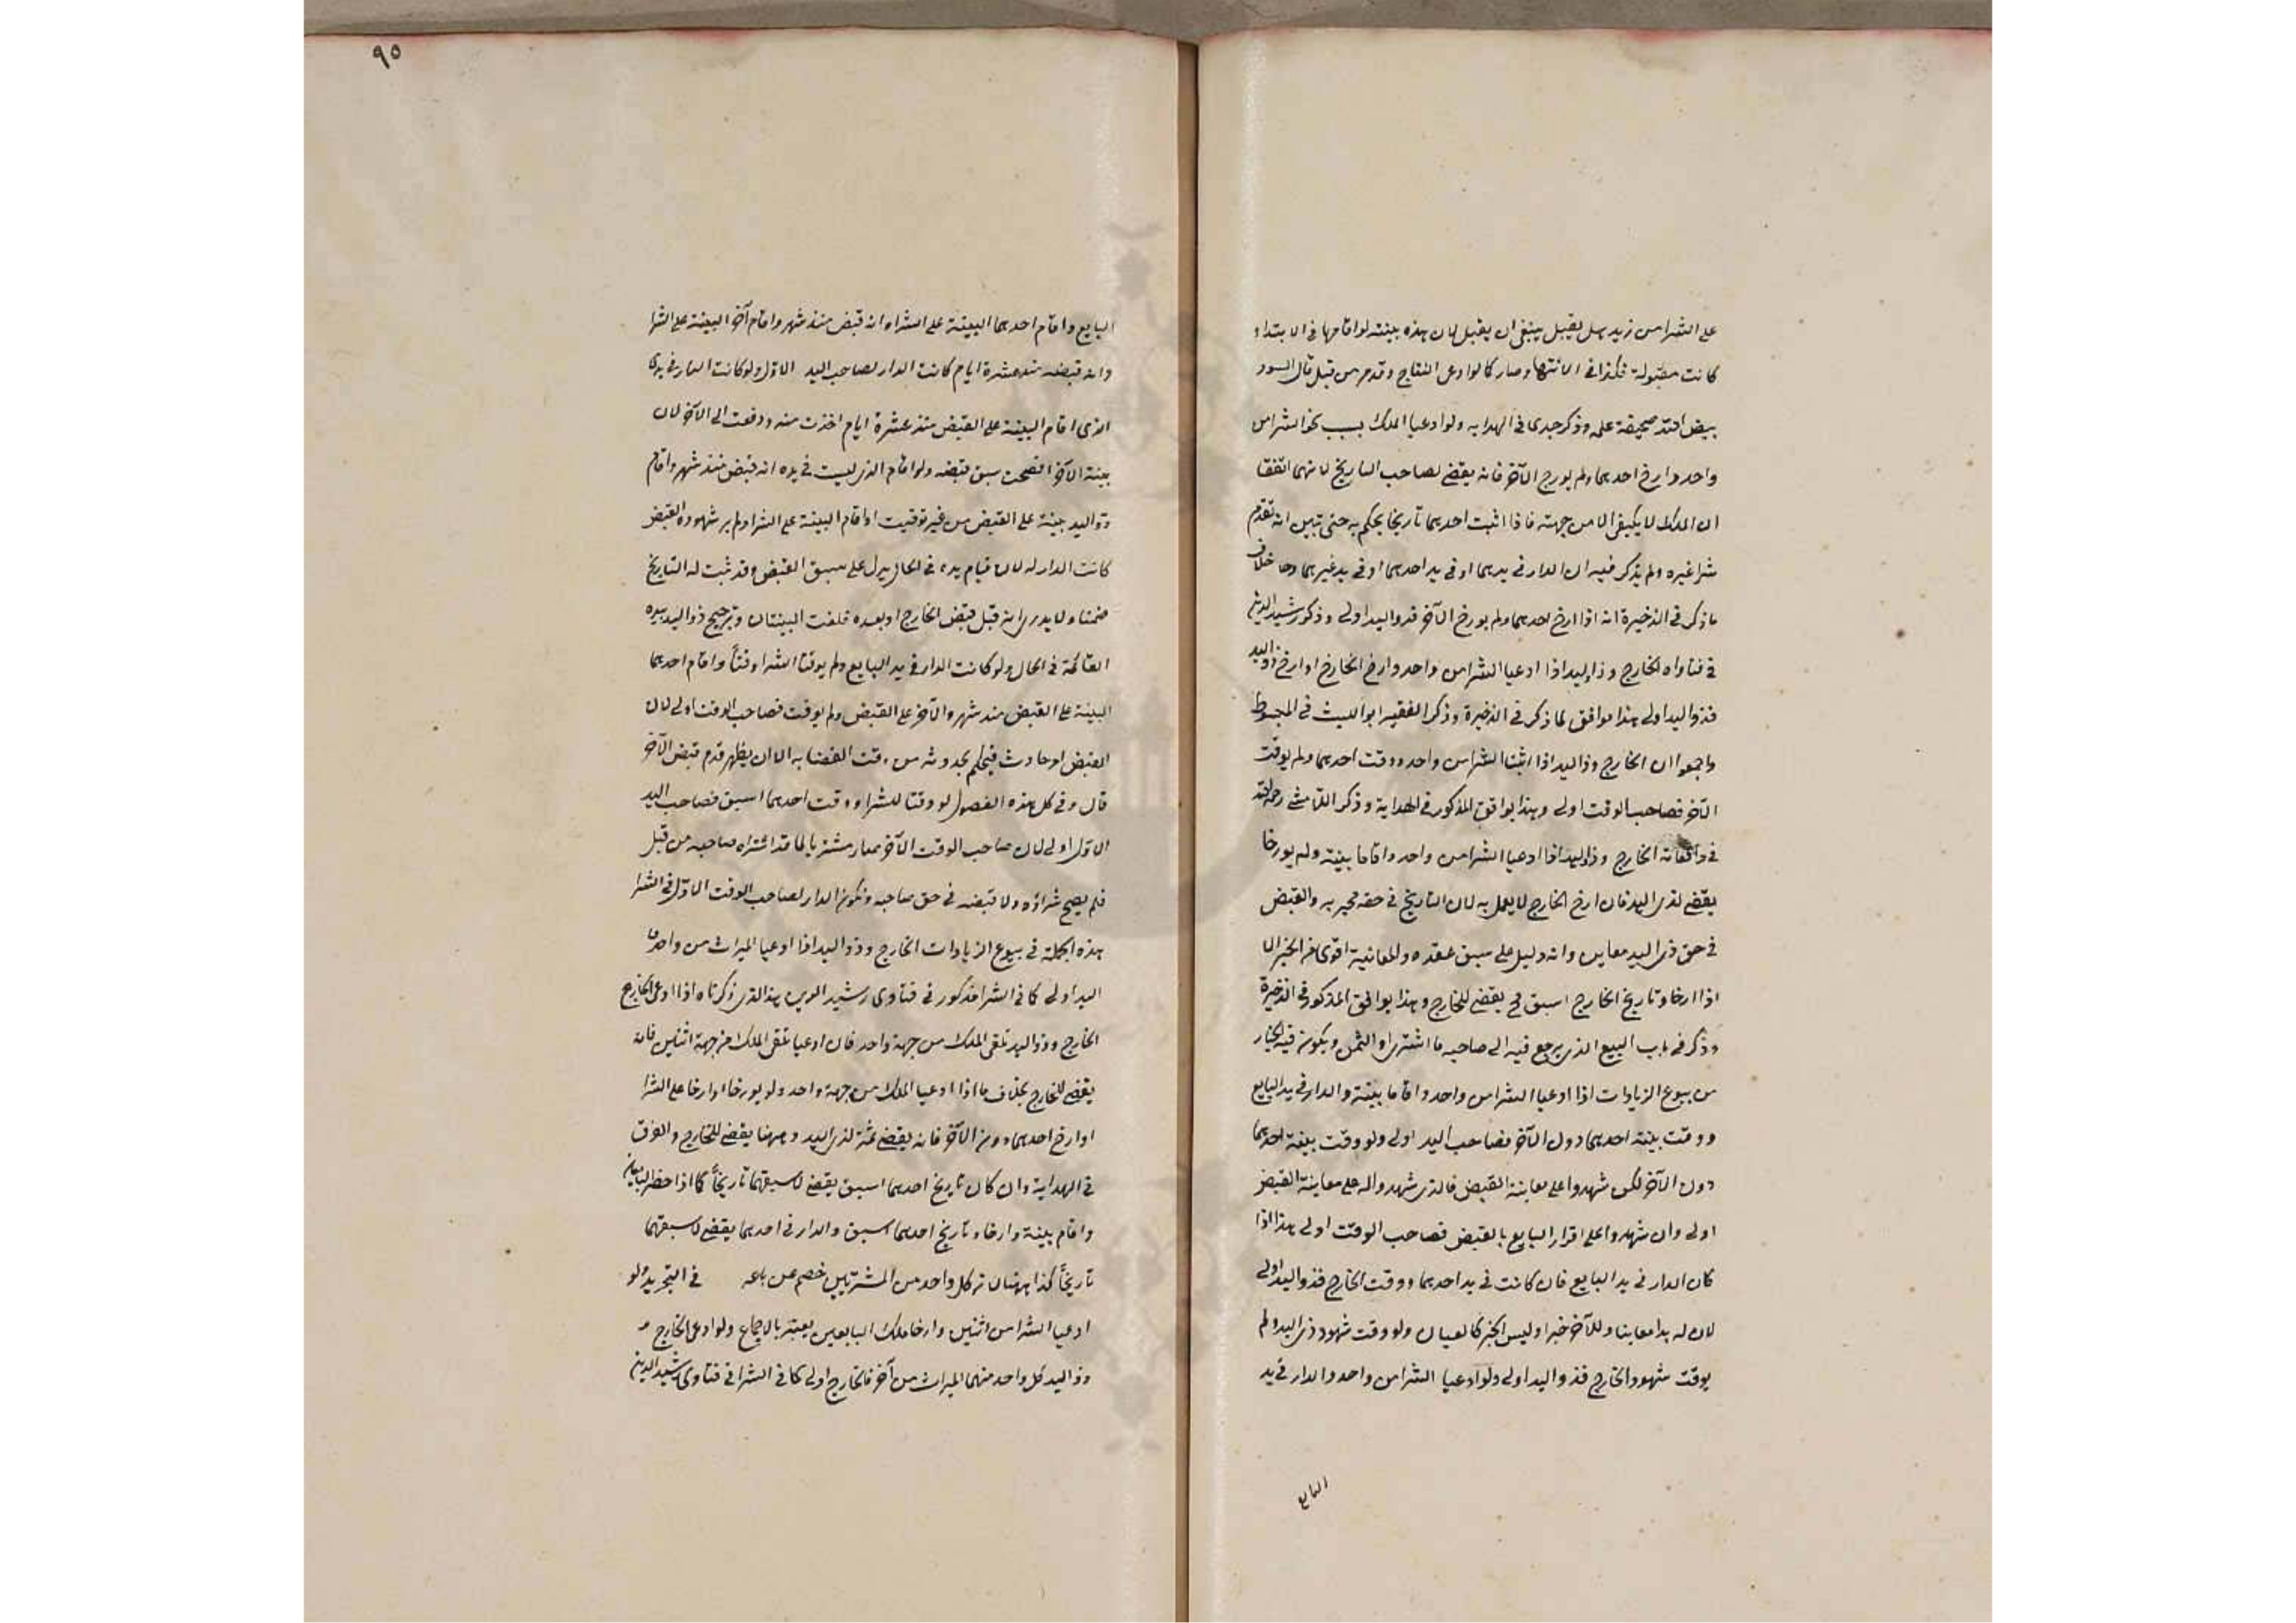 على الشرا من زيد هل يقبل ينبغى ان يقبل لان هذه بينته لو اقامها فى الابتداء
كانت مقبولة فكذا فى الانتها وصار كالو ادعى النتاج وقد مر من قبل قال السود
بيض الله صحيفة عمله وذكر جدى فى الهدايه ولو ادعيا الملك بسبب نحو الشرا من
واحد وارخ احدهما ولم يورخ الآخر فانه يقضى لصاحب التاريخ لانهما اتفقا
ان الملك لا يكون الا من جهته فاذا اثبت احدهما تاريخا يحكم به حتى تبين انه تقدم
شرا غيره ولم يذكر فيه ان الدار فى يدهما او فى يد احدهما او فى يد غيرهما وهذا خلاف
ما ذكر فى الذخيرة انه اذا ارخ احدهما ولم يورخ الآخر فذو اليد اولى وذكر رشيد الدين
فى فتاواه الخارج وذا اليد اذا ادعيا الشرا من واحد وارخ الخارج او ارخ ذو اليد
فذو اليد اولى هذا موافق لما ذكر فى الذخيرة وذكر الفقيه ابو الليث فى المبسوط
واجمعوا ان الخارج وذا اليد اذا اثبتا الشرا من واحد ووقت احدهما ولم يوقت
الآخر فصاحب الوقت اولى وهذا يوافق المذكور فى الهداية وذكر اللامشى رحمه الله
فى واقعاته الخارج وذو اليد اذا ادعيا الشرا من واحد واقاما بينة ولم يورخا
يقضى لذى اليد فان ارخ الخارج لا يعمل به لان التاريخ فى حقه مخبر به والقبض
فى حق ذى اليد معاين وانه دليل على سبق عقده والمعاينة اقوى من الخبر الا
اذا ارخا وتاريخ الخارج اسبق فح يقضى للخارج وهذا يوافق المذكور فى الذخيرة
وذكر فى باب البيع الذى يرجع فيه الى صاحبه ما اشترى او الثمن ويكون فيه الخيار
من بيوع الزيادات اذا ادعيا الشرا من واحد واقاما بينة والدار فى يد البايع
ووقت بينة احدهما دون الآخر فصاحب اليد اولى ولو وقت بينة احدهما
دون الآخر لكن شهدوا على معاينة القبض فالذى شهدوا له على معاينة القبض
اولى وان شهدوا على اقرار البايع بالقبض فصاحب الوقت اولى هذا اذا
كان الدار فى يد البايع فان كانت فى يد احدهما ووقت الخارج فذو اليد اولى
لان له يدا معاينا وللآخر خبرا وليس الخبر كالعيان ولو وقت شهود ذى اليد ولم
يوقت شهود الخارج فذو اليد اولى ولو ادعيا الشرا من واحد والدار فى يد
البايع
٩٥
البايع واقام احدهما البينة على الشراء وانه قبض منذ شهر واقام آخر البينة على الشرا
وانه قبضه منذ عشرة ايام كانت الدار لصاحب اليد الاول ولو كانت الدار فى يدى
الذى اقام البينة على القبض منذ عشرة ايام اخذت منه ودفعت الى الآخر لان
بينة الآخر افصحت سبق قبضه ولو اقام الذى ليست فى يده انه قبض منذ شهر واقام
ذو اليد بينة على القبض من غير توقيت او اقام البينة على الشرا ولم ير شهوده القبض
كانت الدار له لان قيام يده فى الحال يدل على سبق القبض وقد ثبت له التاريخ
ضمنا ولا يدرى انه قبل قبض الخارج او بعده فلغت البينتان وترجح ذو اليد بيده
القائمة فى الحال ولو كانت الدار فى يد البايع ولم يوقتا الشرا وقتاً واقام احدهما
البينة على القبض منذ شهر والآخر على القبض ولم يوقت فصاحب الوقت اولى لان
القبض امر حادث فيحكم بحدوثه من وقت القضا به الا ان يظهر قدم قبض الآخر
قال وفى كل هذه الفصول لو وقتا للشرا ووقت احدهما اسبق فصاحب اليد
الاول اولى لان صاحب الوقت الآخر صار مشتريا لما قد اشتراه صاحبه من قبل
فلم يصح شراؤه ولا قبضه فى حق صاحبه وتكون الدار لصاحب الوقت الاول فى الشرا
هذه الجملة فى بيوع الزيادات الخارج وذو اليد اذا ادعيا الميراث من واحد
اليد اولى كما فى الشرا مذكور فى فتاوى رشيد الدين هذا الذى ذكرناه اذا ادعى الخارج
الخارج وذو اليد تلقى الملك من جهة واحد فان ادعيا تلقى الملك من جهة اثنين فانه
يقضى للخارج بخلاف ما اذا ادعيا الملك من جهة واحد ولو يورخا او ارخا على الشرا
او ارخ احدهما دون الآخر فانه يقضى ثمة لذى اليد وههنا يقضى للخارج والفرق
فى الهداية وان كان تاريخ احدهما اسبق يقضى لاسبقهما تاريخاً كما اذا حضر البايعان
واقام بينة وارخا وتاريخ احدهما اسبق والدار فى احدهما يقضى لاسبقهما
تاريخاً كذا ههنا لان كل واحد من المشتريين خصم عن بايعه فى التجريد ولو
ادعيا الشرا من اثنين وارخا ملك البايعين يعتبر بالاجماع ولو ادعى الخارج و
وذو اليد كل واحد منهما الميراث من آخر فالخارج اولى كما فى الشرا فى فتاوى رشيد الدين